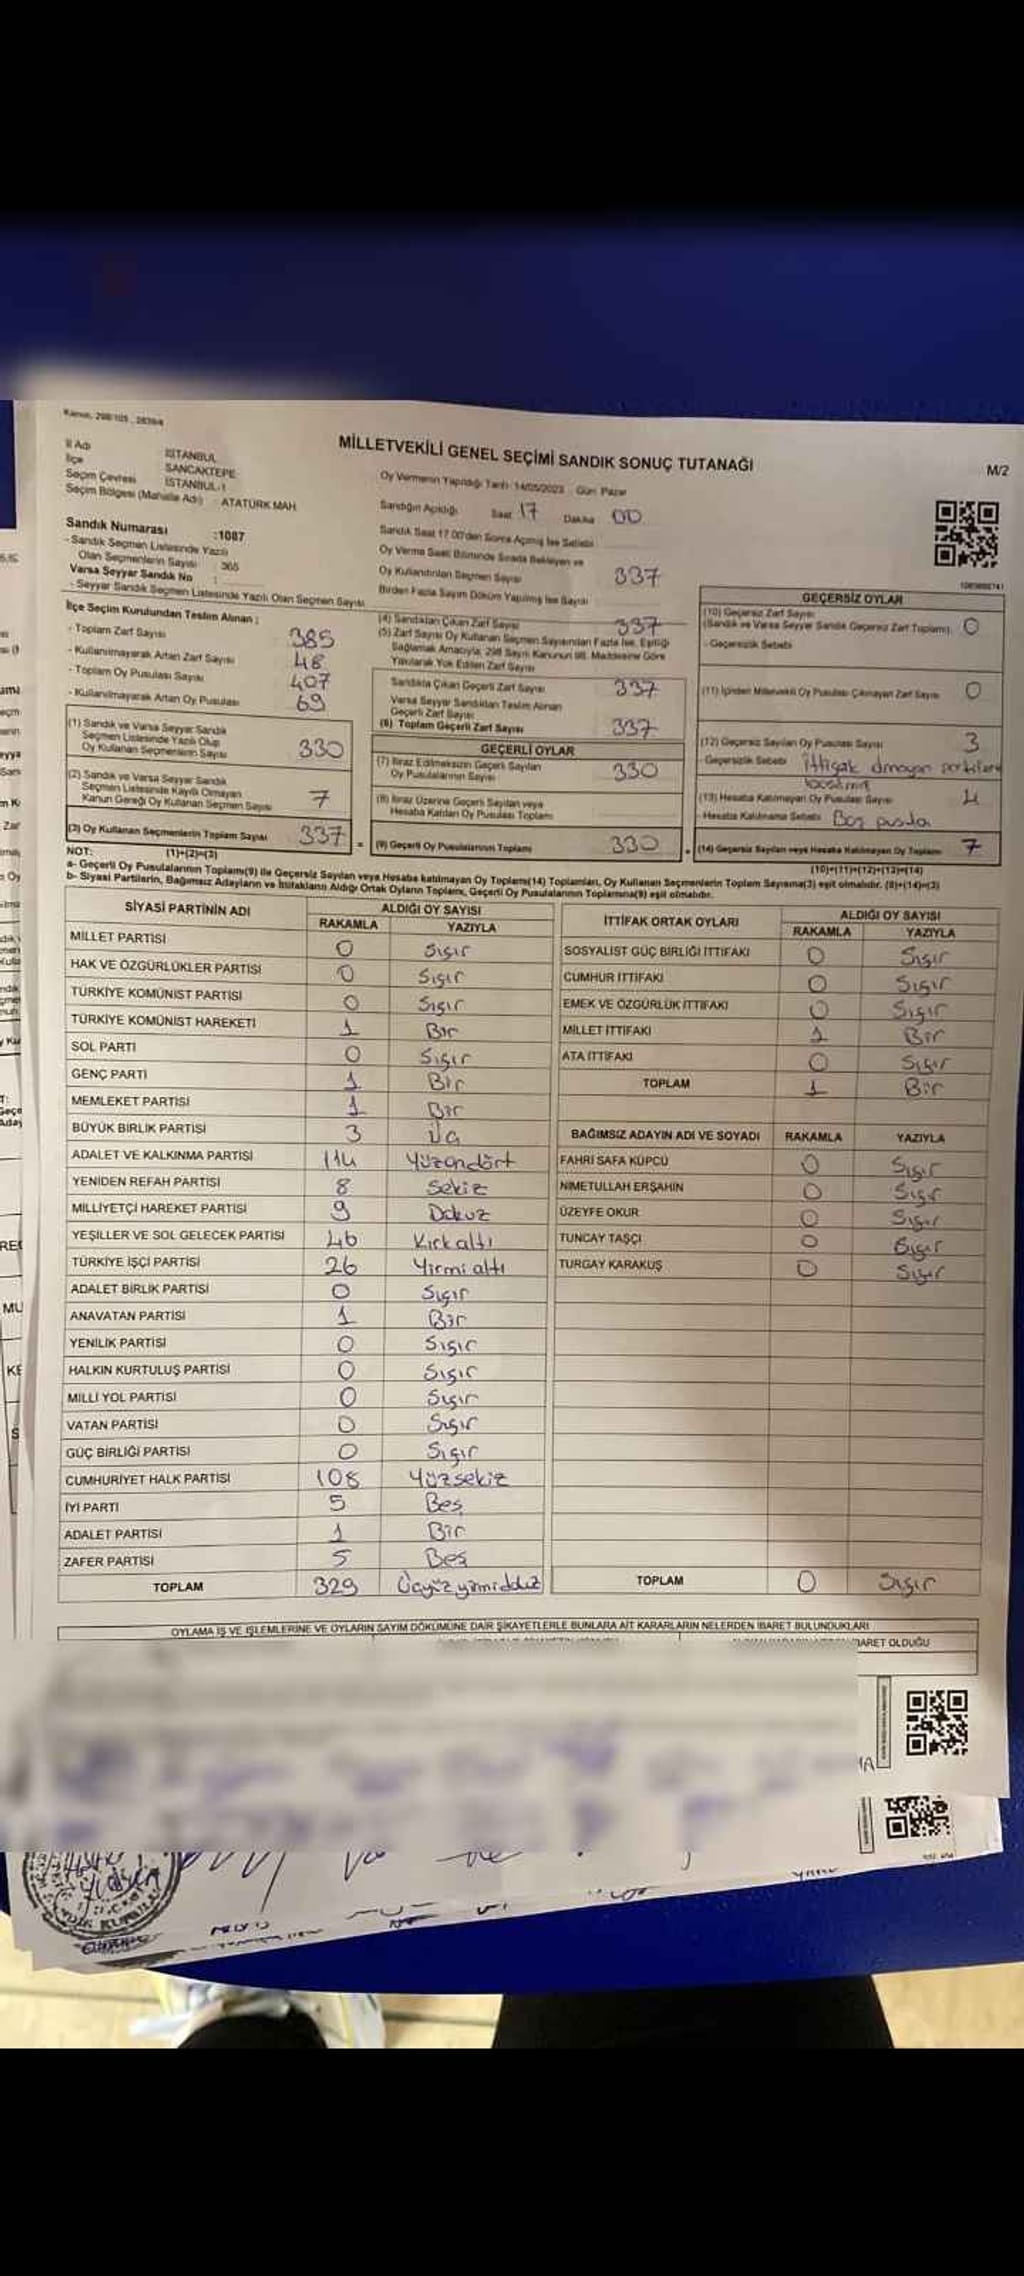 Kanun, 298/105 , 2839/4
MİLLETVEKİLİ GENEL SEÇİMİ SANDIK SONUÇ TUTANAĞI
M/2
İl Adı İSTANBUL
İlçe SANCAKTEPE
Seçim Çevresi İSTANBUL-1
Seçim Bölgesi (Mahalle Adı) : ATATÜRK MAH.
Sandık Numarası :1087
- Sandık Seçmen Listesinde Yazılı
Olan Seçmenlerin Sayısı : 365
Varsa Seyyar Sandık No :
- Seyyar Sandık Seçmen Listesinde Yazılı Olan Seçmen Sayısı
Oy Vermenin Yapıldığı Tarih :14/05/2023 Gün: Pazar
Sandığın Açıldığı Saat 17 Dakika 00
Sandık Saat 17.00'den Sonra Açılmış İse Sebebi
Oy Verme Saati Bitiminde Sırada Bekleyen ve
Oy Kullandırılan Seçmen Sayısı 337
Birden Fazla Sayım Döküm Yapılmış İse Sayısı
İlçe Seçim Kurulundan Teslim Alınan :
- Toplam Zarf Sayısı 385
- Kullanılmayarak Artan Zarf Sayısı 48
- Toplam Oy Pusulası Sayısı 407
- Kullanılmayarak Artan Oy Pusulası 69
(1) Sandık ve Varsa Seyyar Sandık
Seçmen Listesinde Yazılı Olup
Oy Kullanan Seçmenlerin Sayısı 330
(2) Sandık ve Varsa Seyyar Sandık
Seçmen Listesinde Kayıtlı Olmayan
Kanun Gereği Oy Kullanan Seçmen Sayısı 7
(3) Oy Kullanan Seçmenlerin Toplam Sayısı 337 =
(1)+(2)=(3)
(4) Sandıktan Çıkan Zarf Sayısı 337
(5) Zarf Sayısı Oy Kullanan Seçmen Sayısından Fazla İse, Eşitliği
Sağlamak Amacıyla, 298 Sayılı Kanunun 98. Maddesine Göre
Yakılarak Yok Edilen Zarf Sayısı
Sandıkta Çıkan Geçerli Zarf Sayısı 337
Varsa Seyyar Sandıktan Teslim Alınan
Geçerli Zarf Sayısı
(6) Toplam Geçerli Zarf Sayısı 337
GEÇERLİ OYLAR
(7) İtiraz Edilmeksizin Geçerli Sayılan
Oy Pusulalarının Sayısı 330
(8) İtiraz Üzerine Geçerli Sayılan veya
Hesaba Katılan Oy Pusulası Toplamı
(9) Geçerli Oy Pusulalarının Toplamı 330 +
GEÇERSİZ OYLAR
(10) Geçersiz Zarf Sayısı
(Sandık ve Varsa Seyyar Sandık Geçersiz Zarf Toplamı) 0
- Geçersizlik Sebebi
(11) İçinden Milletvekili Oy Pusulası Çıkmayan Zarf Sayısı 0
(12) Geçersiz Sayılan Oy Pusulası Sayısı 3
- Geçersizlik Sebebi ittifak olmayan partilere
(13) Hesaba Katılmayan Oy Pusulası Sayısı 4
- Hesaba Katılmama Sebebi Boş pusula
(14) Geçersiz Sayılan veya Hesaba Katılmayan Oy Toplamı 7
(10)+(11)+(12)+(13)=(14)
NOT:
a- Geçerli Oy Pusulalarının Toplamı(9) ile Geçersiz Sayılan veya Hesaba katılmayan Oy Toplamı(14) Toplamları, Oy Kullanan Seçmenlerin Toplam Sayısına(3) eşit olmalıdır. (9)+(14)=(3)
b- Siyasi Partilerin, Bağımsız Adayların ve İttifakların Aldığı Ortak Oyların Toplamı, Geçerli Oy Pusulalarının Toplamına(9) eşit olmalıdır.
SİYASİ PARTİNİN ADI ALDIĞI OY SAYISI
RAKAMLA YAZIYLA
MİLLET PARTİSİ 0 Sıgır
HAK VE ÖZGÜRLÜKLER PARTİSİ 0 Sıgır
TÜRKİYE KOMÜNİST PARTİSİ 0 Sıgır
TÜRKİYE KOMÜNİST HAREKETİ 1 Bir
SOL PARTİ 0 Sıgır
GENÇ PARTİ 1 Bir
MEMLEKET PARTİSİ 1 Bir
BÜYÜK BİRLİK PARTİSİ 3 Üç
ADALET VE KALKINMA PARTİSİ 114 Yüzondört
YENİDEN REFAH PARTİSİ 8 Sekiz
MİLLİYETÇİ HAREKET PARTİSİ 9 Dokuz
YEŞİLLER VE SOL GELECEK PARTİSİ 46 Kırkaltı
TÜRKİYE İŞÇİ PARTİSİ 26 Yirmialtı
ADALET BİRLİK PARTİSİ 0 Sıgır
ANAVATAN PARTİSİ 1 Bir
YENİLİK PARTİSİ 0 Sıgır
HALKIN KURTULUŞ PARTİSİ 0 Sıgır
MİLLİ YOL PARTİSİ 0 Sıgır
VATAN PARTİSİ 0 Sıgır
GÜÇ BİRLİĞİ PARTİSİ 0 Sıgır
CUMHURİYET HALK PARTİSİ 108 Yüzsekiz
İYİ PARTİ 5 Beş
ADALET PARTİSİ 1 Bir
ZAFER PARTİSİ 5 Beş
TOPLAM 329
İTTİFAK ORTAK OYLARI ALDIĞI OY SAYISI
RAKAMLA YAZIYLA
SOSYALİST GÜÇ BİRLİĞİ İTTİFAKI 0 Sıgır
CUMHUR İTTİFAKI 0 Sıgır
EMEK VE ÖZGÜRLÜK İTTİFAKI 0 Sıgır
MİLLET İTTİFAKI 1 Bir
ATA İTTİFAKI 0 Sıgır
TOPLAM 1 Bir
BAĞIMSIZ ADAYIN ADI VE SOYADI RAKAMLA YAZIYLA
FAHRİ SAFA KÜPCÜ 0 Sıgır
NİMETULLAH ERŞAHİN 0 Sıgır
ÜZEYFE OKUR 0 Sıgır
TUNCAY TAŞÇI 0 Sıgır
TURGAY KARAKUŞ 0 Sıgır
TOPLAM 0 Sıgır
OYLAMA İŞ VE İŞLEMLERİNE VE OYLARIN SAYIM DÖKÜMÜNE DAİR ŞİKAYETLERLE BUNLARA AİT KARARLARIN NELERDEN İBARET BULUNDUKLARI